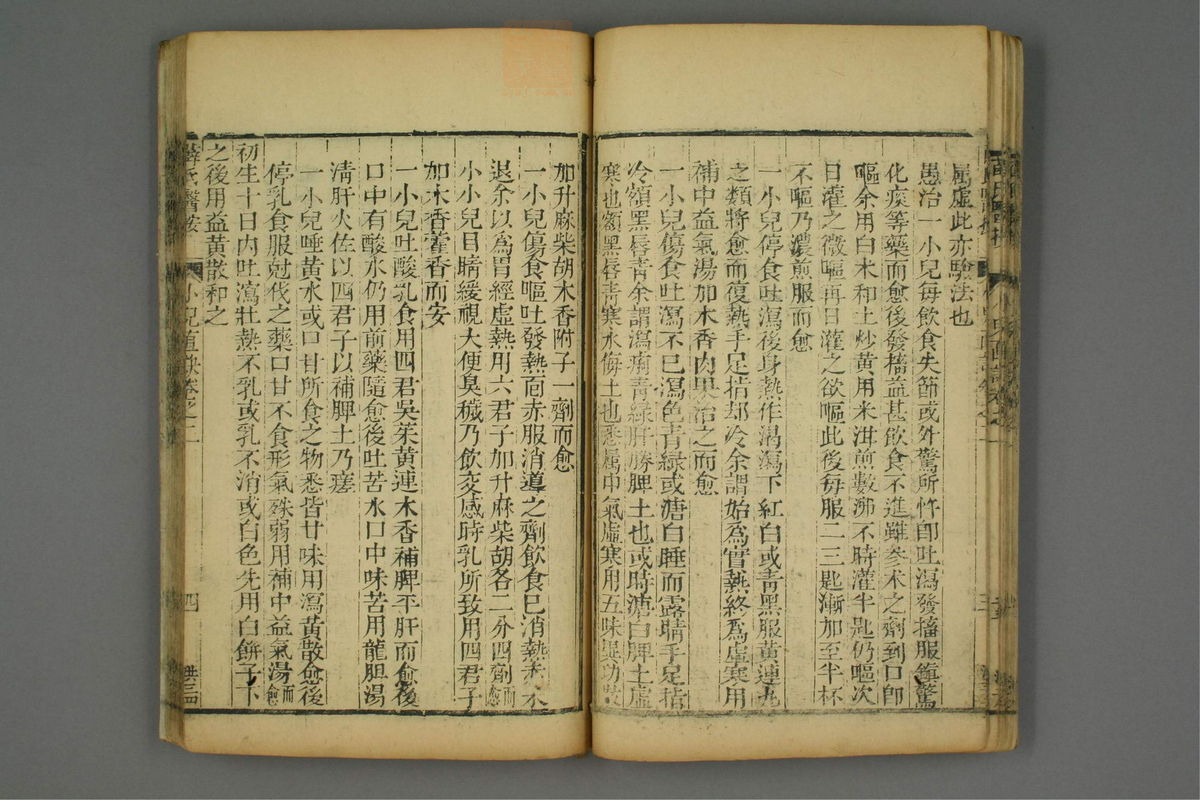 屬虛此亦驗法也
愚治一小兒每飲食失節或外驚所忤卽吐瀉發搐服鎮驚
化痰等藥而愈後發搐益甚飲食不進雖參术之劑到口卽
嘔余用白术和土炒黃用米泔煎數沸不時灌半匙仍嘔次
日灌之微嘔再日灌之欲嘔此後每服二三匙漸加至半杯
不嘔乃濃煎服而愈
一小兒停食吐瀉後身熱作渴瀉下紅白或青黑服黃連丸
之類將愈而復熱手足指却冷余謂始為實熱終為虛寒用
補中益氣湯加木香肉果治之而愈
一小兒傷食吐瀉不已瀉色青綠或溏白睡而露睛手足指
冷額黑唇青余謂瀉痢青綠肝勝脾土也或時溏白脾土虛
寒也額黑唇青寒水侮土也悉屬中氣虛寒用五味異功散
加升麻柴胡木香附子一劑而愈
一小兒傷食嘔吐發熱面赤服消導之劑飲食已消熱赤不
退余以為胃經虛熱用六君子加升麻柴胡各二分四劑而愈
小小兒目睛緩視大便臭穢乃飲交感時乳所致用四君子
加木香藿香而安
一小兒吐酸乳食用四君吳茱黃連木香補脾平肝而愈後
口中有酸水仍用前藥隨愈後吐苦水口中味苦用龍胆湯
淸肝火佐以四君子以補脾土乃瘥
一小兒唾黃水或口甘所食之物悉皆甘味用瀉黃散愈後
停乳食服尅伐之藥口甘不食形氣殊弱用補中益氣湯而愈
初生十日內吐瀉壯熱不乳或乳不消或白色先用白餅子下
之後用益黃散和之
薛氏醫按
小兒直訣卷之二
四